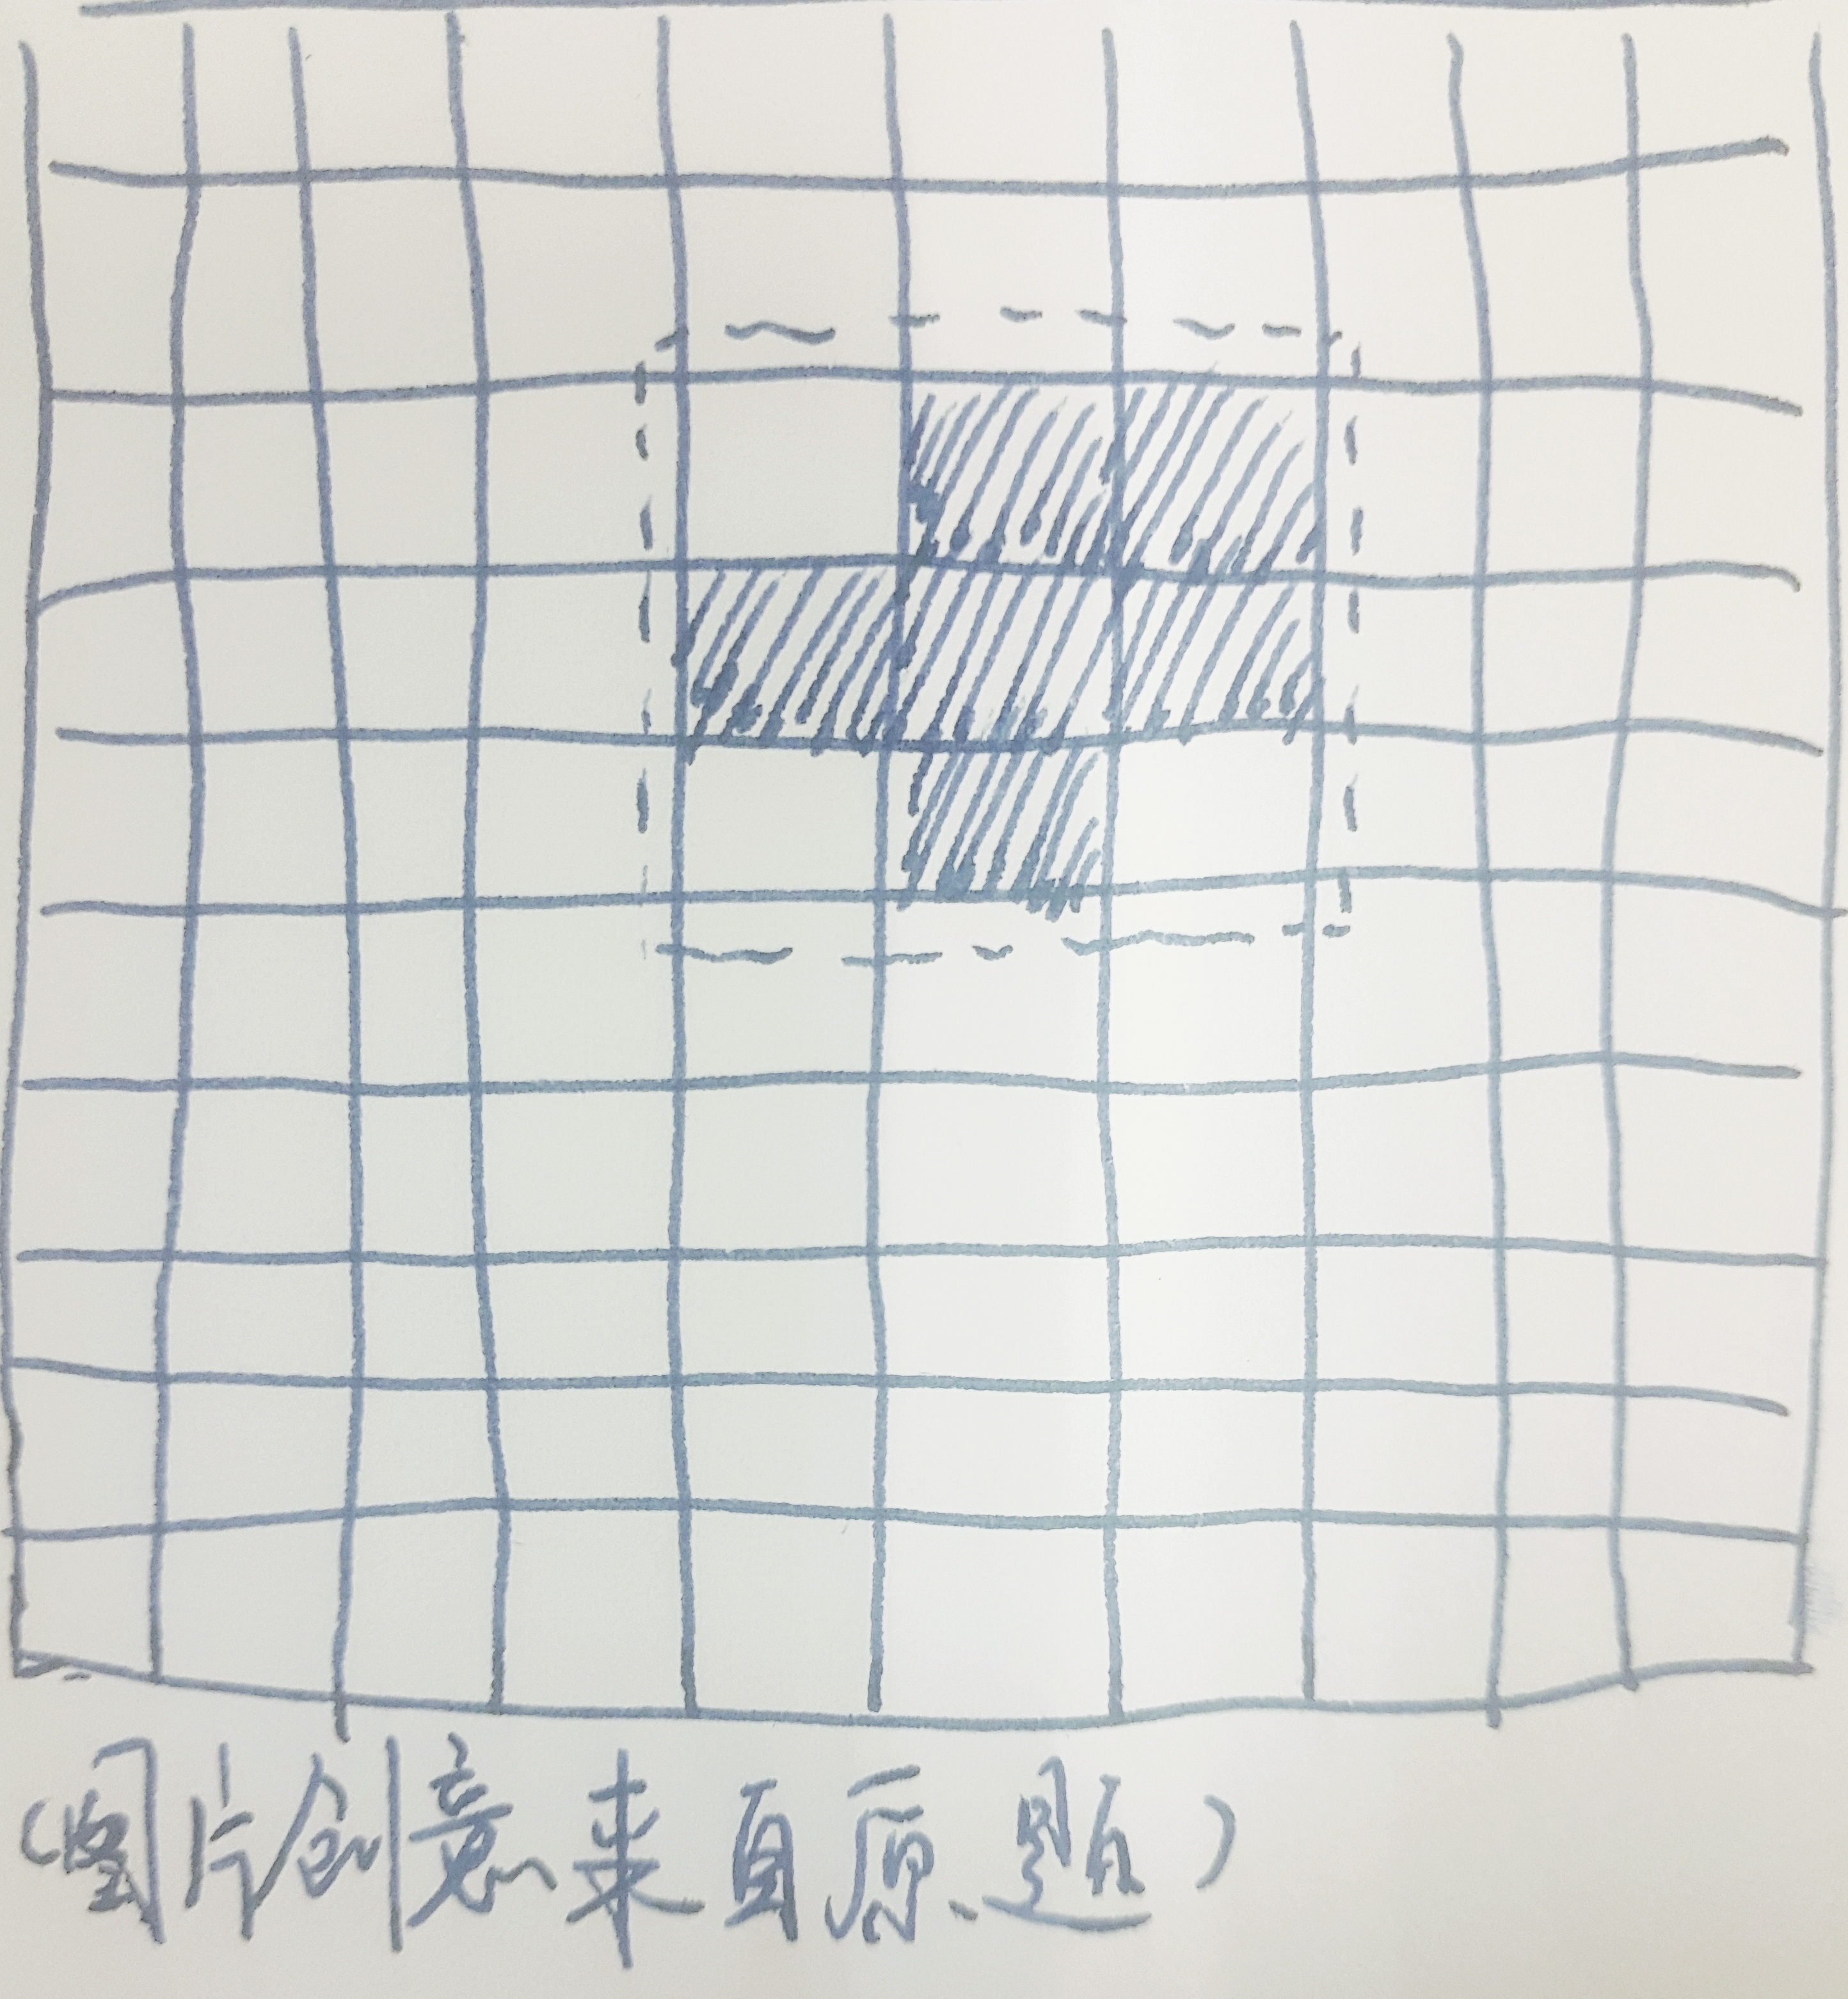 (图片创意来自原题)